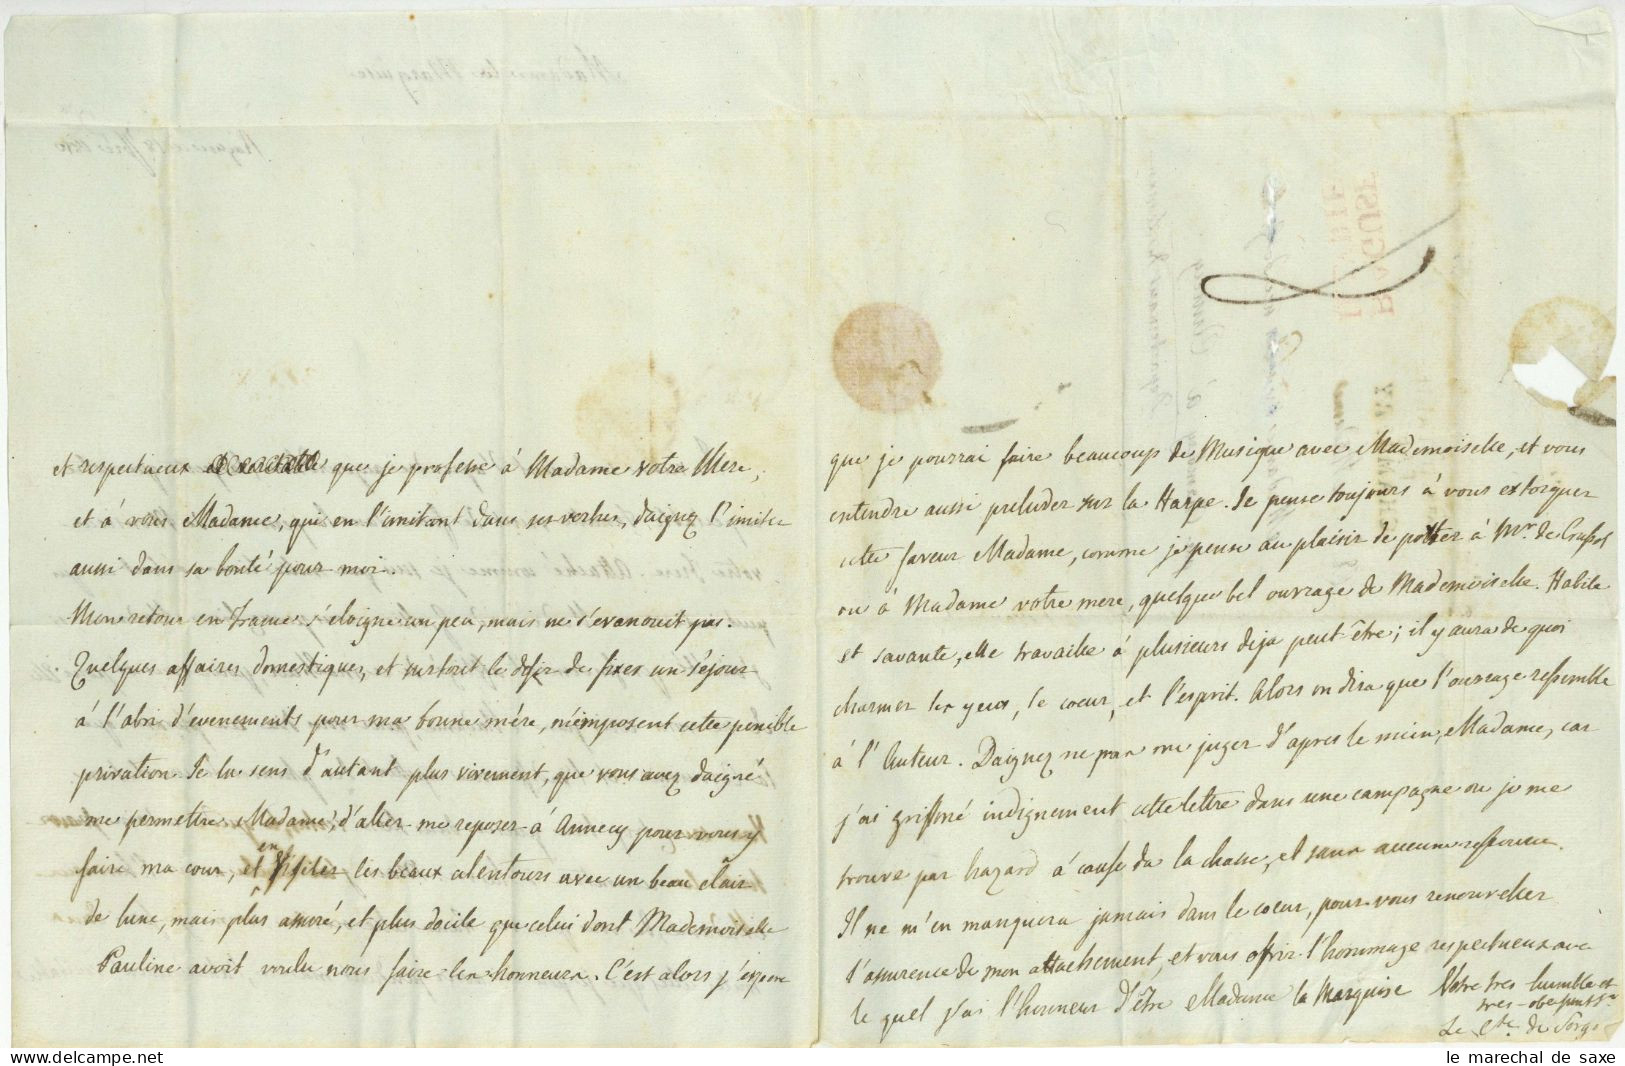 et respectueux que je professe à Madame votre Mere,
et à vous Madame, qui en l'imitant dans ses vertus, daignez l'imiter
aussi dans sa bonté pour moi.
Mon retour en France s'éloigne un peu, mais ne s'évanouit pas.
Quelques affaires domestiques, et surtout le desir de fixer un séjour
à l'abri d'evenements pour ma bonne mére, m'imposent cette penible
privation. Je la sens d'autant plus vivement, que vous avez daigné
me permettre Madame, d'aller me reposer à Annecy pour vous y
faire ma cour, et en visiter les beaux alentours avec un beau clair
de lune, mais plus assuré, et plus docile que celui dont Mademoiselle
Pauline avoit voulu nous faire les honneurs. C'est alors j'espere
que je pourrai faire beaucoup de Musique avec Mademoiselle, et vous
entendre aussi preluder sur la Harpe. Je pense toujours à vous extorquer
cette faveur Madame, comme je pense au plaisir de porter à Mr. de Crussol
ou à Madame votre mere, quelque bel ouvrage de Mademoiselle. Habile
et savante, elle travaille à plusieurs deja peut être; il y aura de quoi
charmer les yeux, le coeur, et l'esprit. Alors on dira que l'ouvrage ressemble
à l'Auteur. Daignez ne pas me juger d'apres le mien, Madame, car
j'ai griffoné indignement cette lettre dans une campagne ou je me
trouve par hazard à cause de la chasse, et sans aucune ressource.
Il ne m'en manquera jamais dans le coeur, pour vous renouveller
l'assurence de mon attachement, et vous offrir l'hommage respectueux avec
le quel j'ai l'honneur d'être Madame la Marquise Votre tres humble et
tres-obeissant Sr
Le Cte. de Sorgo
le marechal de saxe